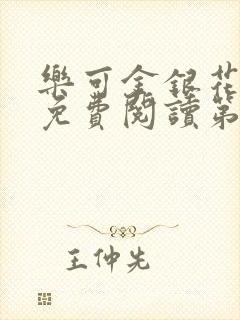 樂可金銀花
免費閱讀第
王仲先